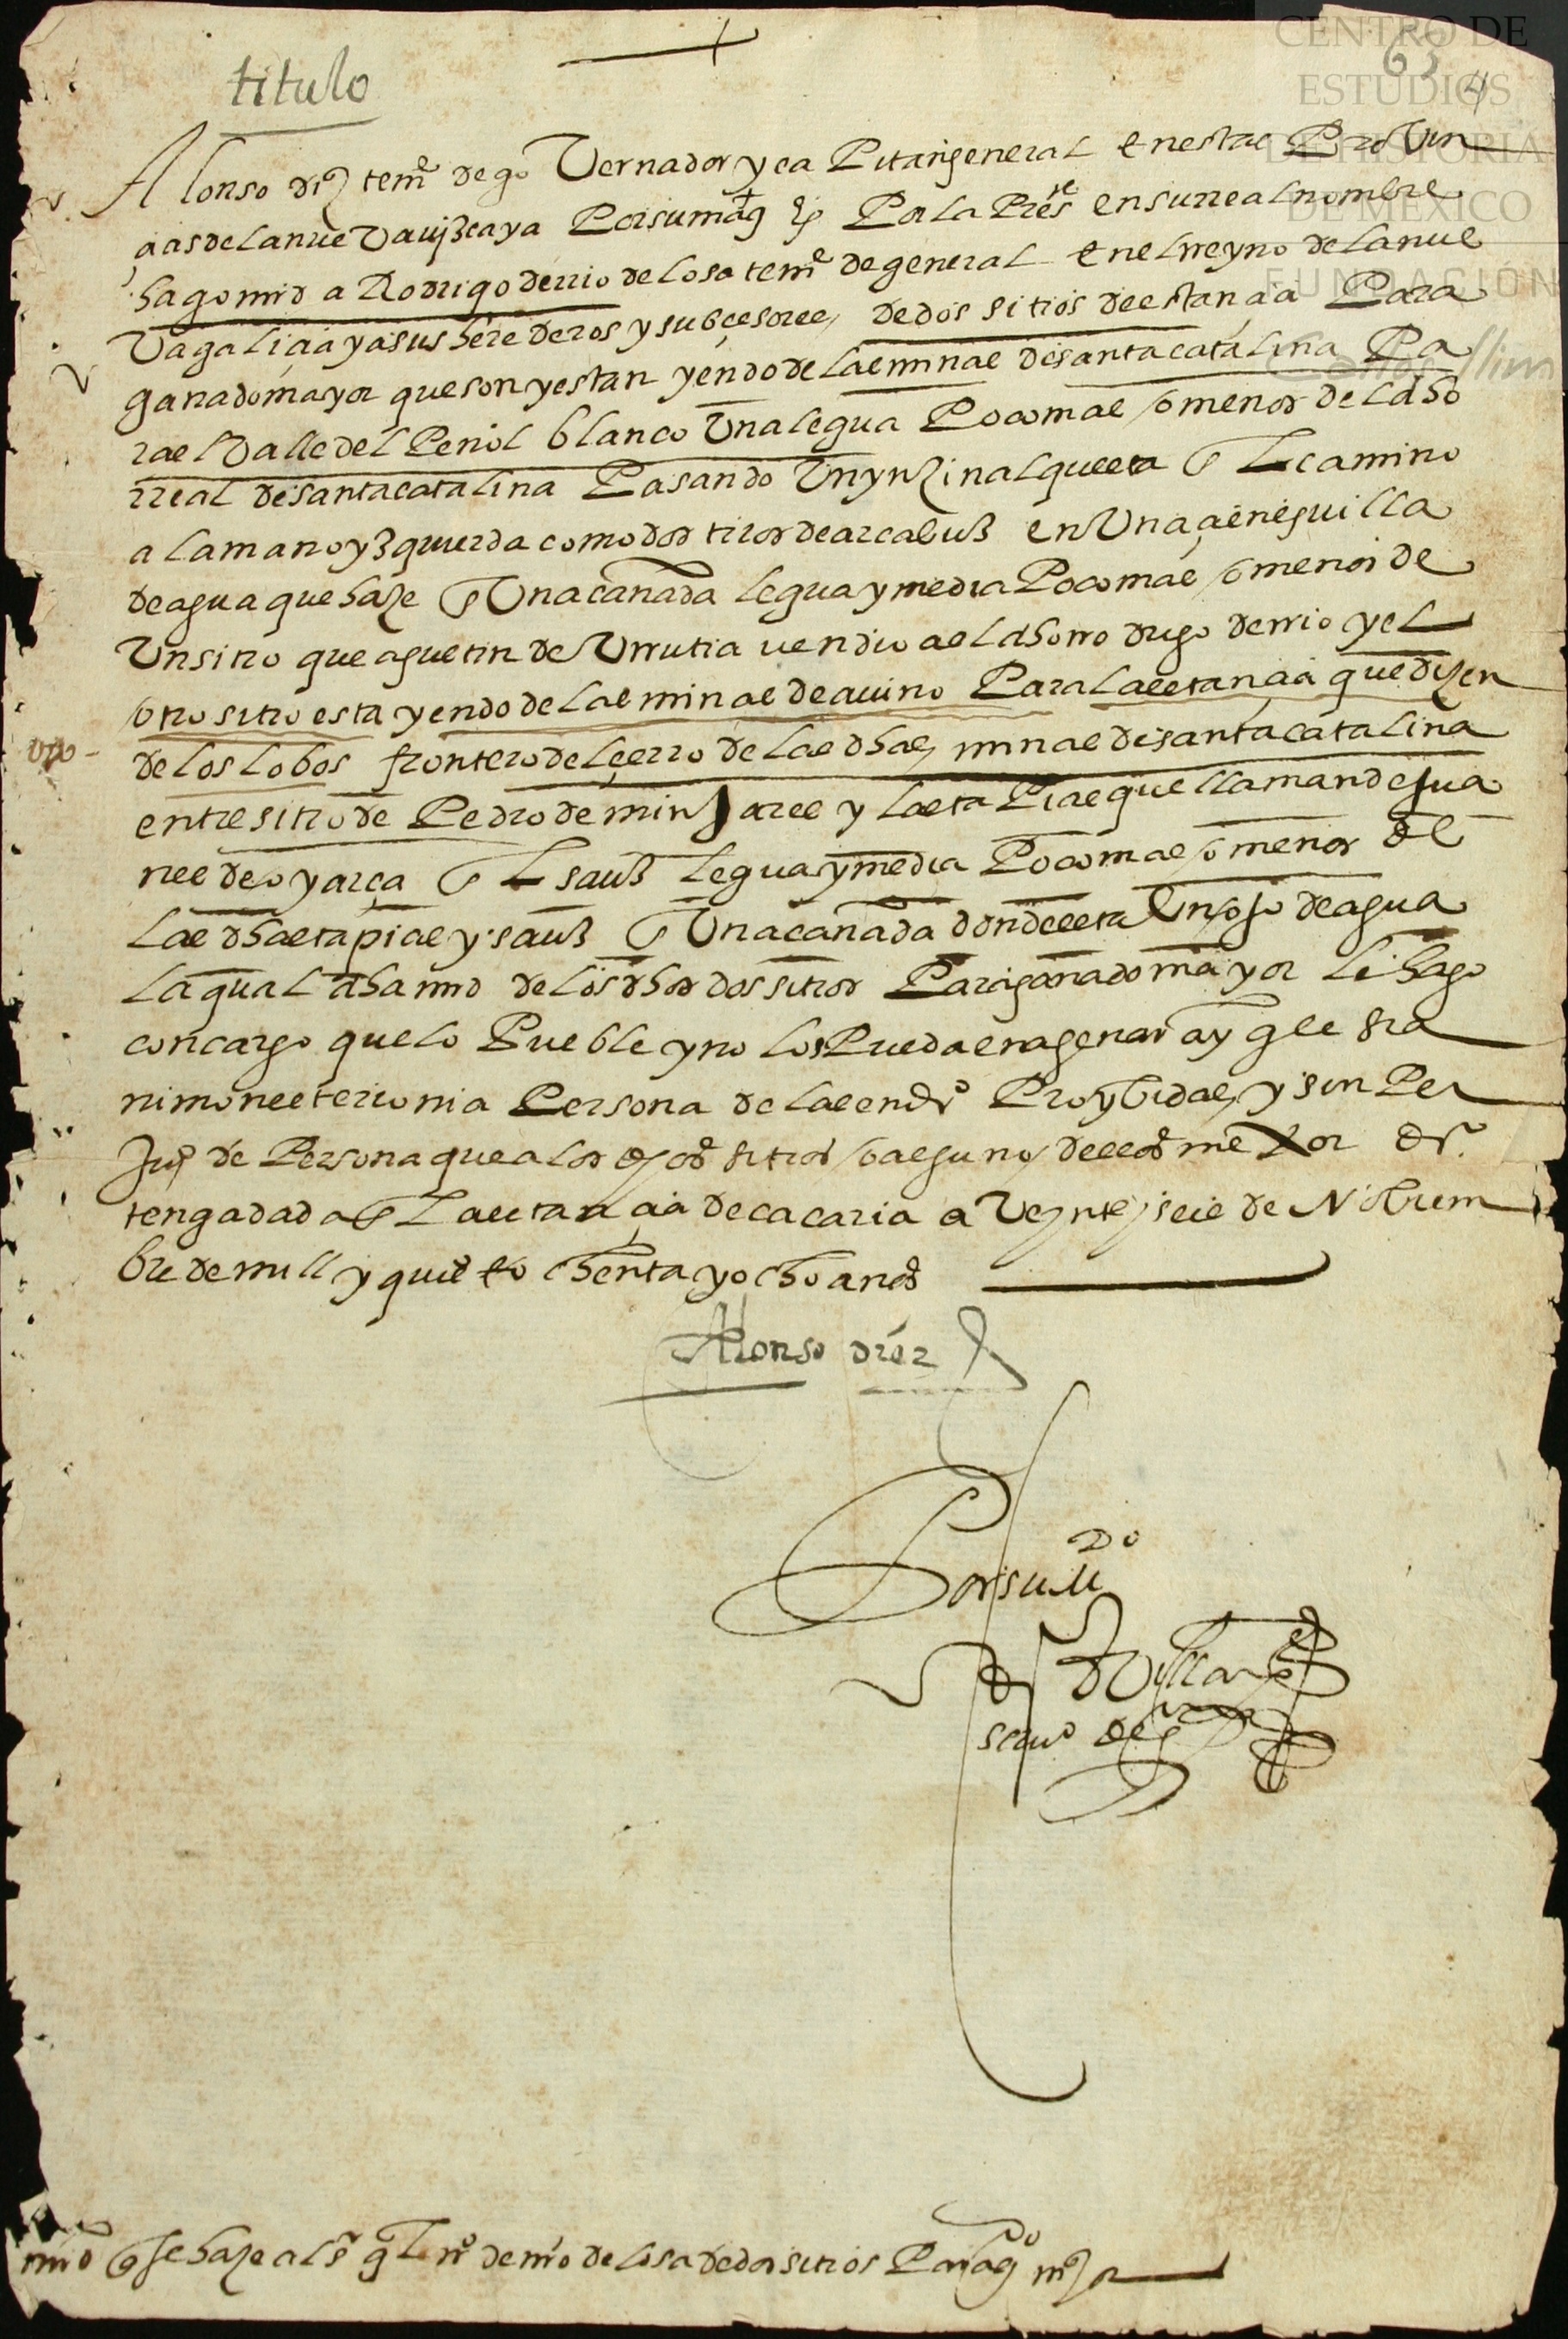 CENTRO DE
ESTUDIOS
DE HISTORIA
DE MÉXICO
FUNDACIÓN
Carlos Slim
65
4
titulo
Alonso diz tenie de go Vernador y ca Pitan general en estas Provin
çias de la nueva vizcaya Por su magt Por la Preste en su rreal nombre
hago mrd a Rodrigo de rrio de losa tenie de general en el rreyno de la nue
Va galiçia y a sus herederos y subçesores de dos sitios de estançia Para
ganado mayor que son y estan yendo de las minas de santa catalina Pa
ra el Valle del Peñol blanco Una legua Poco mas o menos del dho
rreal de santa catalina Pasando Un ynzinal que esta El camino
a la mano yzquierda como dos tiros de arcabuz en Una çieneguilla
de agua que haze Una cañada legua y media Poco mas o menos de
Un sitio que agustin de Urrutia vendio a el dho rrodrigo de rrio y el
otro sitio esta yendo de las minas de avino Para la estançia que dizen
de los lobos frontero del çerro de las dhas minas de santa catalina
entre sitio de Pedro de minjares y las ta Pias que llaman de jua
nes de oyarça El sauz legua y media Poco mas o menos de
las dhas tapias y sauz Una cañada donde esta Un ojo de agua
la qual dha mrd de los dhos dos sitios Para ganado mayor le hago
con cargo que lo Pueble y no los Pueda enagenar a yglesia
ni monesterio ni a Persona de las en dro Proybidas y sin Per
juio de Persona que a los dhos sitios o alguno dellos mexor dro
tenga dada En La estançia de cacaria a Veynte y seis de Noviem
bre de mill y quios ochenta y ocho años
Alonso diez
Por su mdo
scrivo de
mrd q se haze al sr gl ro de rrio de losa de dos sitios Para gdo mor